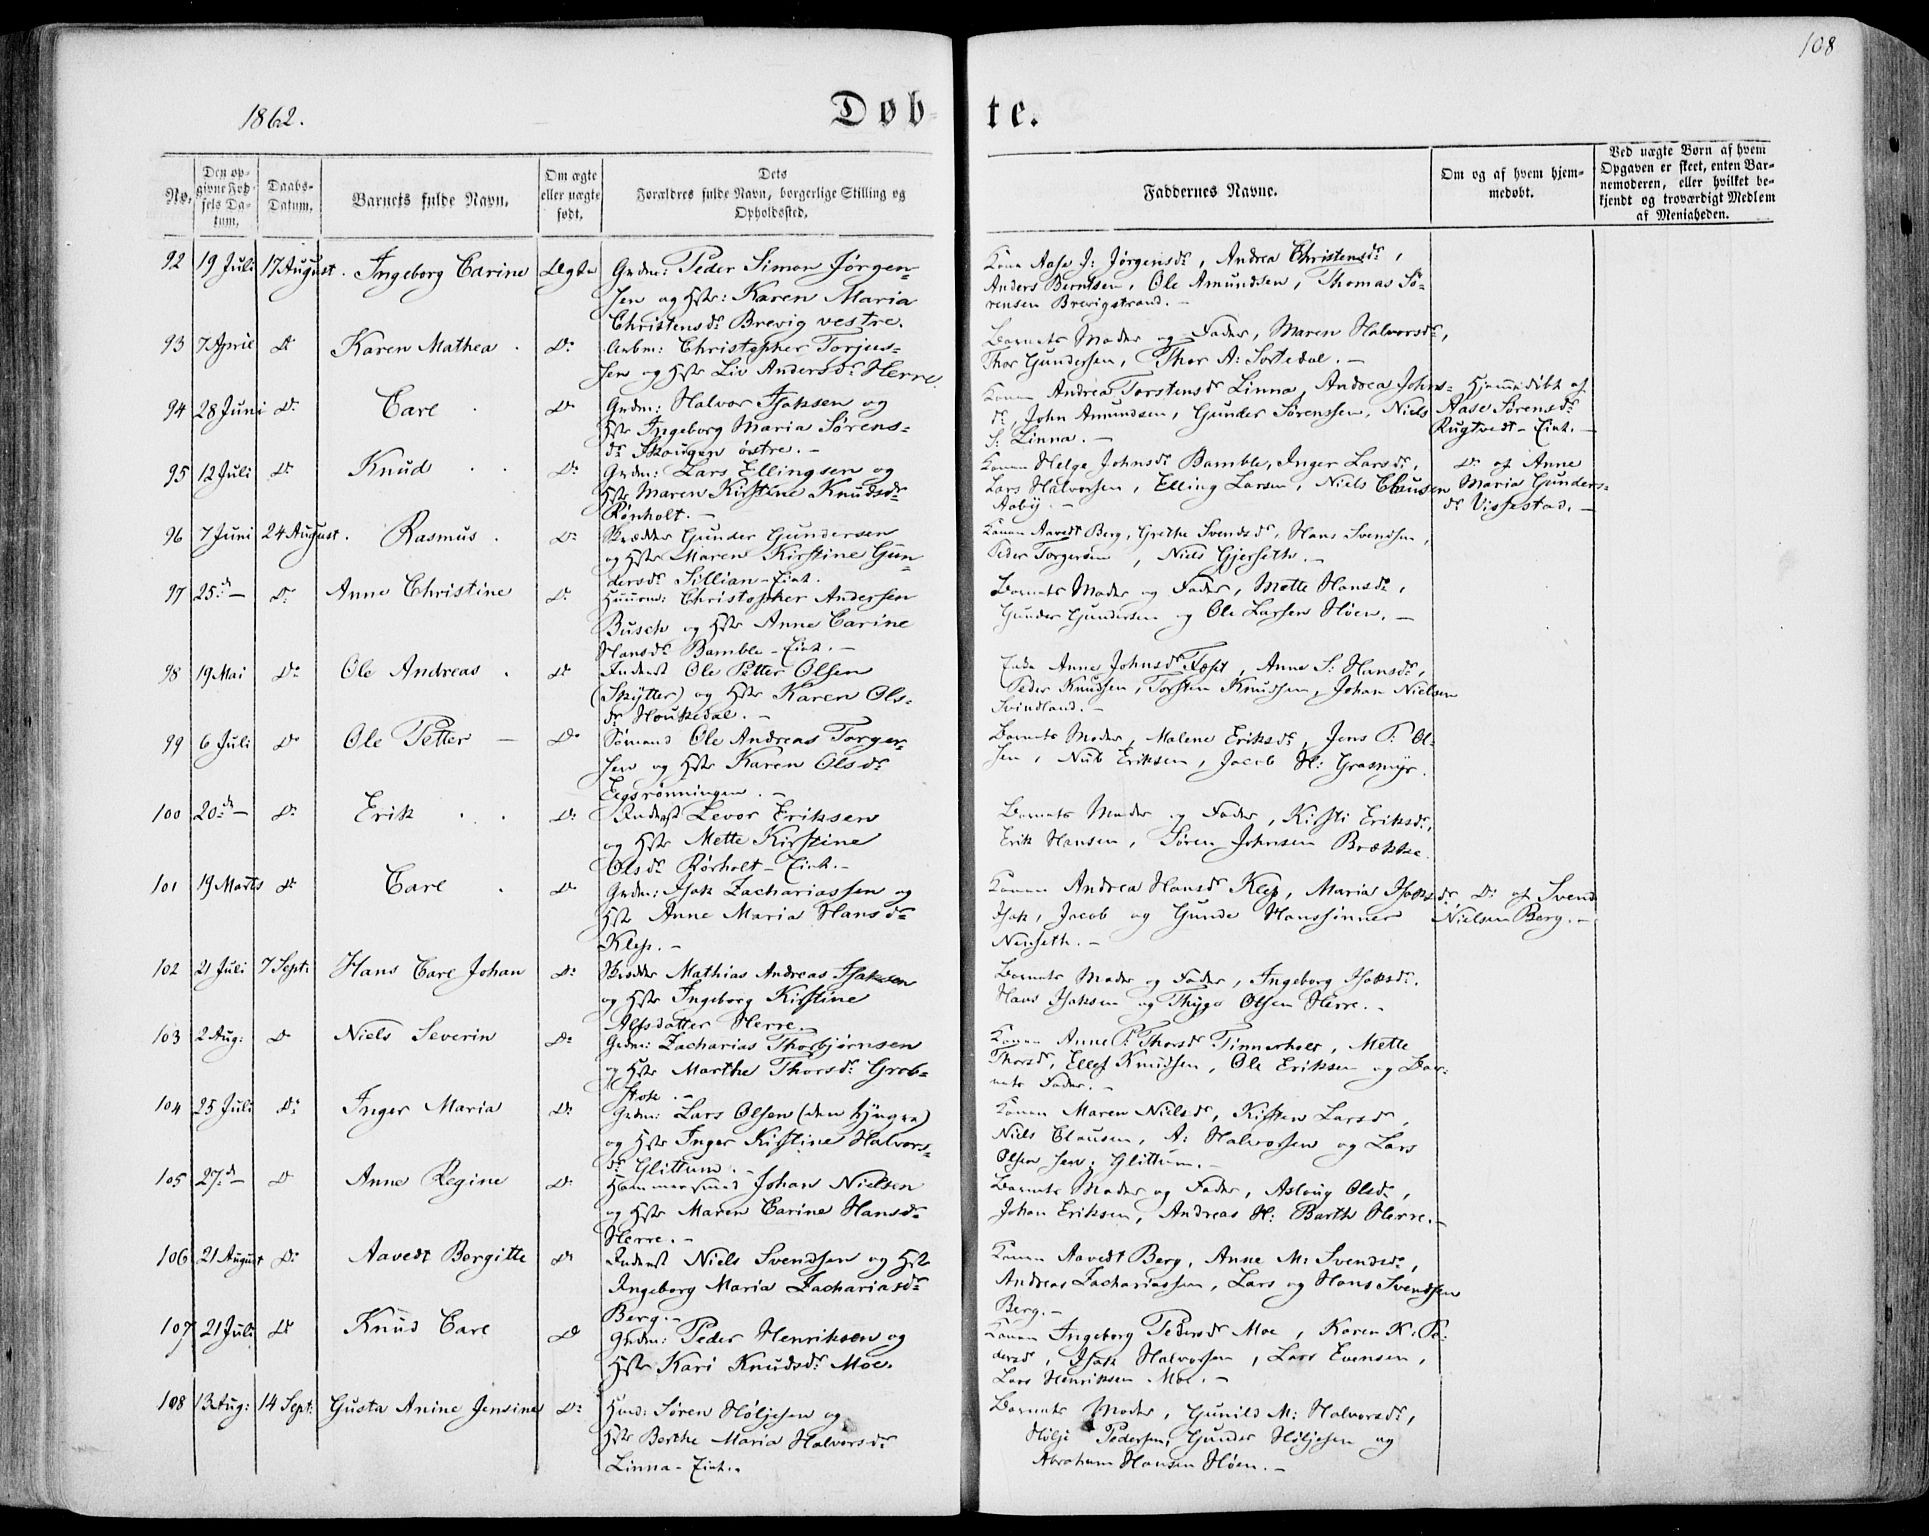 108
1862.
Døbte.
No.
Den opgivne Fødsels Datum.
Daabs-Datum.
Barnets fulde Navn.
Om ægte eller uægte født.
Dets Forældres fulde Navn, borgerlige Stilling og Opholdssted.
Faddernes Navne.
Om og af hvem hjemmedøbt.
Ved uægte Børn af hvem Opgaven er skeet, enten Barnemoderen, eller hvilket bekjendt og troværdigt Medlem af Menigheden.
92 19 Juli 17 August. Ingeborg Carine Ægte Grdm: Peder Simon Jørgen-
sen og Hstr: Karen Maria
Christensdr Brevig vestre.
Konen Aase J: Jørgensdr, Andrea Christensdr,
Anders Berntsen, Ole Amundsen, Thomas Sö-
rensen Brevigstrand. —
93 7 April do Karen Mathea . Do Arbm: Christopher Torjus-
sen og Hstr Liv Andersdr Herre.
Barnets Moder og Fader, Maren Halvorsdr,
Thor Gundersen, Thor A: Sortedal. —
94 28 Juni Do Carl . Do Grdm: Halvor Isaksen og
Hstr Ingeborg Maria Sørens-
dr Skougen østre. —
Konen Andrea Torstensdr Linna, Andrea Johns-
dr, John Amundsen, Gunder Sørenssen, Niels
S: Linna. —
Hjemmedöbt af
Aase Sörensdr
Rugtvedt – Eiet. —
95 12 Juli Do Knud . . Do Grdm: Lars Ellingsen og
Hstr Maren Kirstine Knudsdr
Rønholt. —
Konen Helge Johnsdr Bamble, Inger Larsdr,
Lars Halvorsen, Elling Larsen, Niels Clausen
Aaby. —
Do af Anne
Maria Gunders-
dr Vissestad. —
96 7 Juni 24 August. Rasmus . Do Skrædder Gunder Gundersen
og Hstr Maren Kirstine Gun-
dersdr Sillian – Eiet.
Konen Aavedt Berg, Grethe Svendsdr, Hans Svendsen,
Peder Torgersen, Niels Gjerseths. —
97 25. de – Do Anne Christine Do Huusm: Christopher Andersen
Busch og Hstr Anne Carine
Hansdr Bamble – Eiet. —
Barnets Moder og Fader, Mette Hansdr,
Gunder Gundersen og Ole Larsen Höen. —
98 19 Mai Do Ole Andreas . do Inderst Ole Petter Olsen
(Skytter) og Hstr Karen Ols-
dr Houkedal. —
Anne Johnsdr Tosst, Anne S: Hansdr,
Peder Knudsen, Torsten Knudsen, Johan Nielsen
Svindland. —
99 6 Juli Do Ole Petter — Do Sømand Ole Andreas Torger-
sen og Hstr Karen Olsdr
Eegsrønningen. —
Barnets Moder, Malene Eriksdr, Jens P: Ol-
sen, Nub Eriksen, Jacob H: Grasmyr.
100 20. de – Do Erik . . Do Inderst Levor Eriksen
og Hstr Mette Kirstine
Olsdr Rørholt – Eiet. —
Barnets Moder og Fader, Kirsti Eriksdr,
Erik Hansen, Søren Johnsen Brække.
101 19 Marts do Carl . Do Grdm: Isak Zachariassen og
Hstr Anne Maria Hansdr
Klep. —
Konen Andrea Hansdr Klep, Maria Isaksdr,
Isak, Jacob og Gunde Hanssönner
Nenseth. —
Do af Svend
Nielsen Berg. —
102 21 Juli 7 Sept: Hans Carl Johan Do Skrædder Mathias Andreas Isaksen
og Hstr Ingeborg Kirstine
Alfsdatter Herre.
Barnets Moder og Fader, Ingeborg Isaksdr,
Hans Isaksen og Thyge Olsen Herre. —
103 2 Aug: Do Niels Severin Do Grdm: Zacharias Thorbjørnsen
og Hstr Marthe Thorsdr Grob-
stok. —
Konen Anne P: Thorsdr Tinnerholt, Mette
Thorsdr, Ellef Knudsen, Ole Eriksen og Bar-
nets Fader. —
104 25 Juli Do Inger Maria Do Grdm: Lars Olsen (den Yyngre)
og Hstr Inger Kirstine Halvors-
dr Glittum. —
Konen Maren Nielsdr, Kirsten Larsdr,
Niels Clausen, A: Halvorsen og Lars
Olsen sen: Glittum. —
105 27. de – Do Anne Regine Do Hammersmed Johan Nielsen
og Hstr Maren Carine Hansdr
Herre. —
Barnets Moder og Fader, Aslaug Olsdr,
Johan Eriksen, Andreas H: Barth Herre. —
106 21 August Do Aavedt Bergitte Do Inderst Niels Svendsen og Hst
Ingeborg Maria Zachariasdr
Berg. —
Konen Aavedt Berg, Anne M: Svendsdr,
Andreas Zachariassen, Lars og Hans Svendsen
Berg. —
107 21 Juli Do Knud Carl Do Grdm: Peder Henriksen og
Hstr Kari Knudsdr Moe.
Konen Ingeborg Pedersdr Moe, Karen K: Pe-
dersdr, Isak Halvorsen, Lars Evensen,
Lars Henriksen Moe. —
108 13 Aug: 14 Sept: Gusta Anine Jensine Do Hmd: Søren Høljesen og
Hstr Berthe Maria Halvorsdr
Linna – Eiet. —
Barnets Moder, Gunild M: Halvorsdr,
Hölje Pedersen, Gunder Höljesen og
Abraham Hansen Höen. —